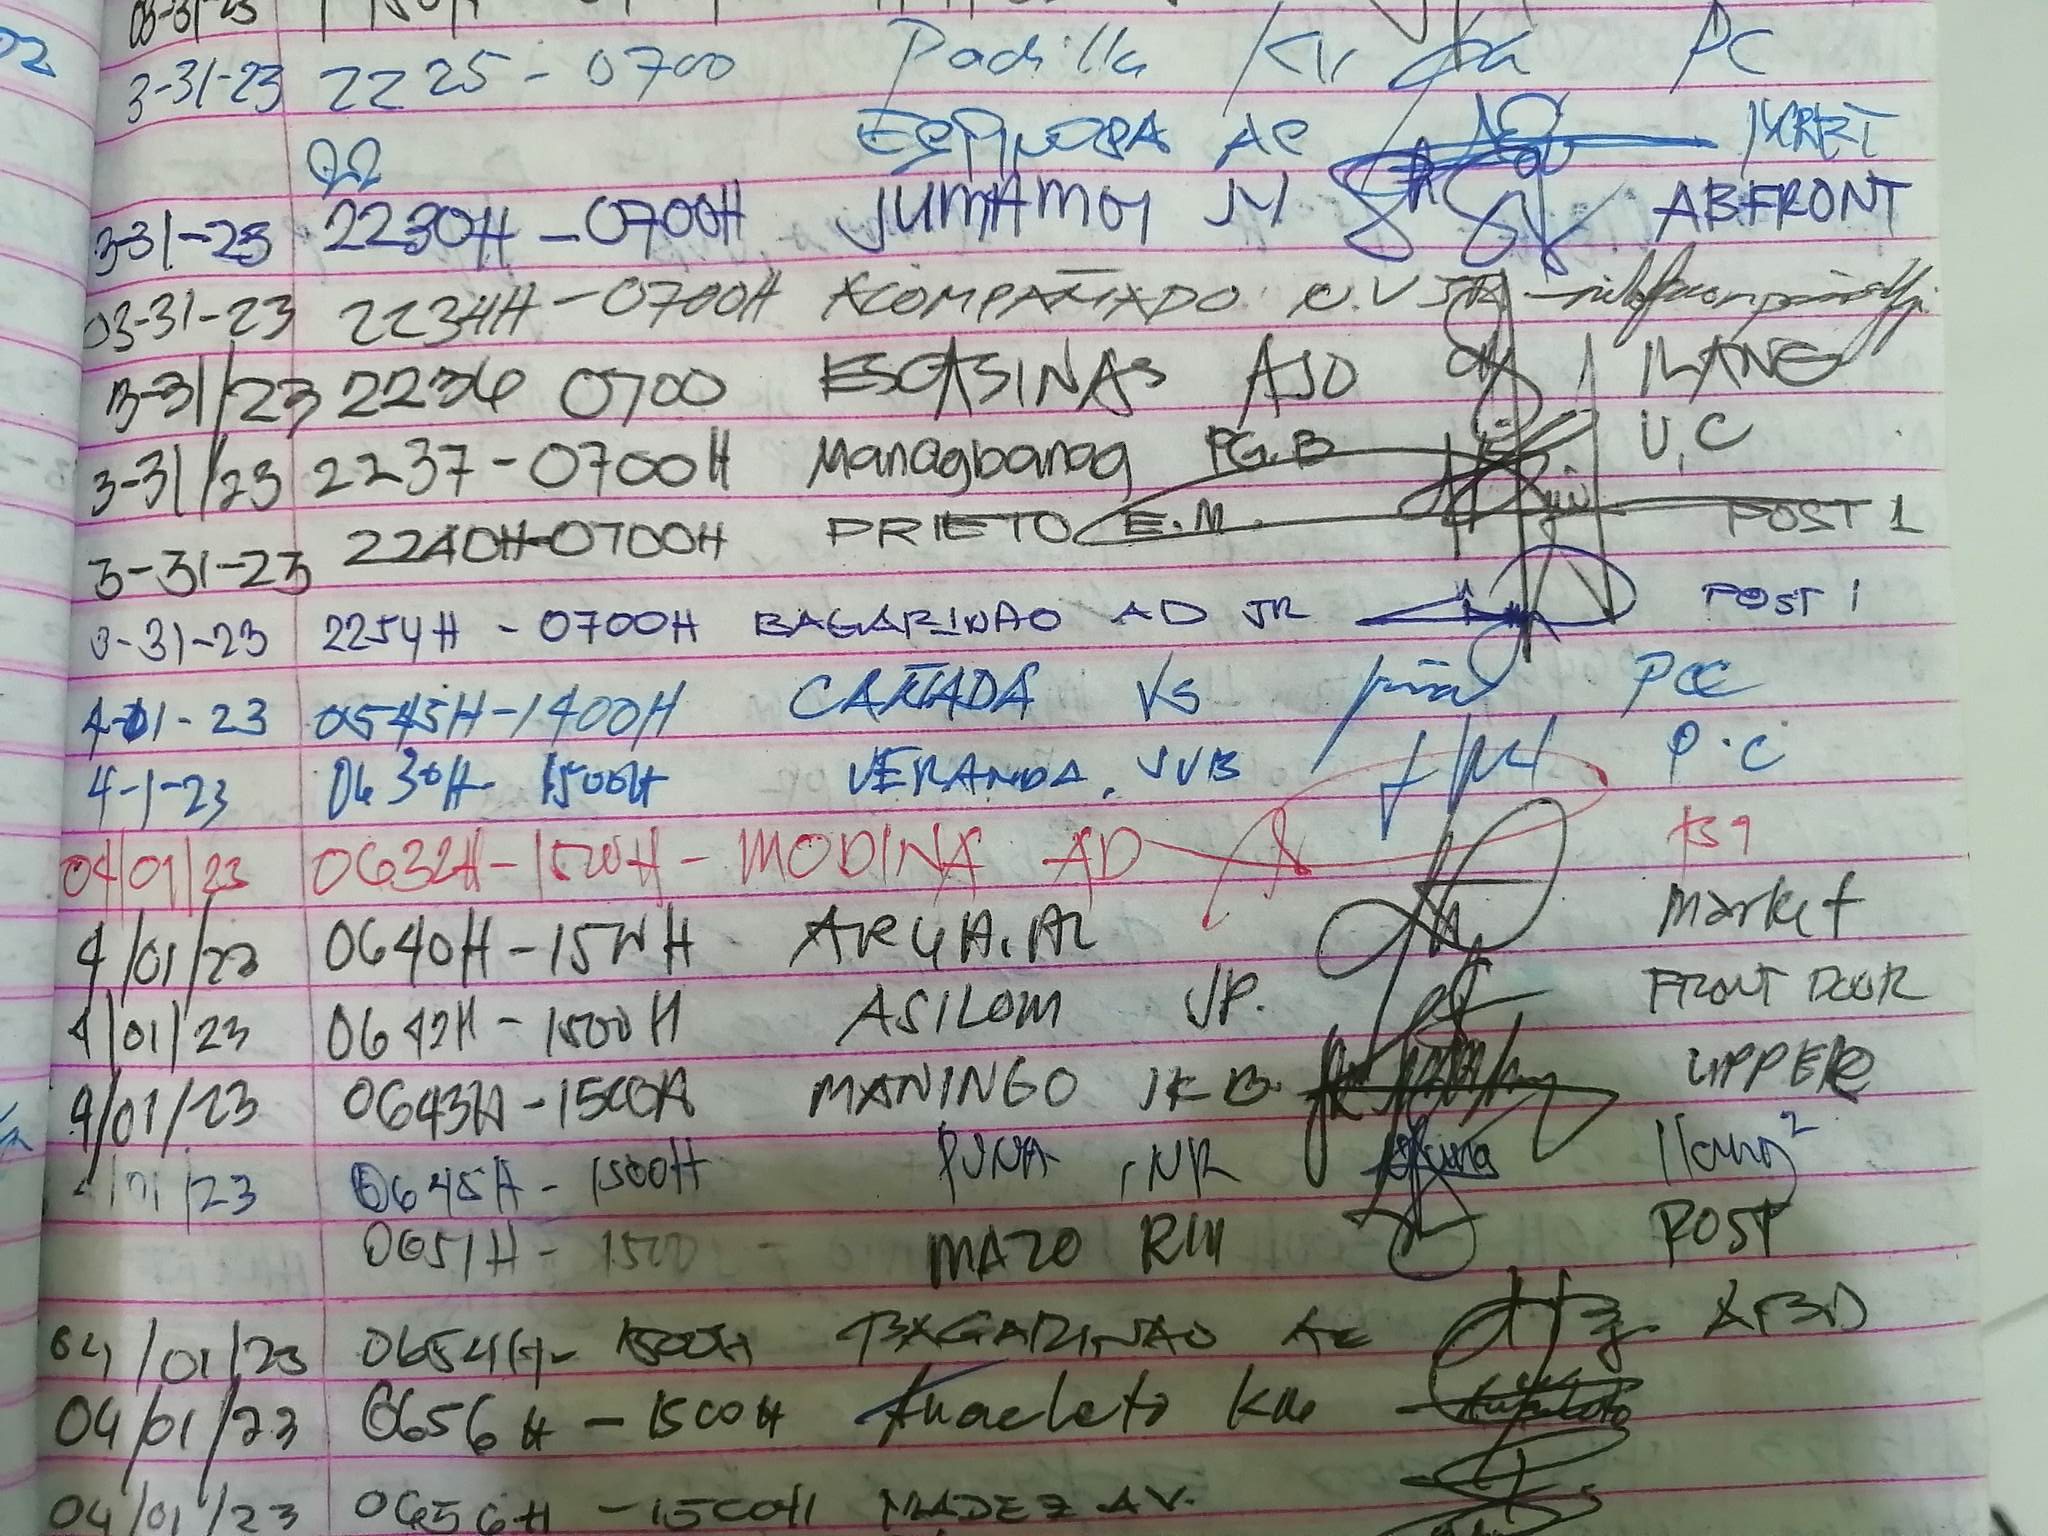 02
03-31-23
3-31-23 2225 - 0700 Padilla KV PC
22 ESPINOSA AC
3-31-23 2230H - 0700H JUMAMOY JY ABFRONT
03-31-23 2234H - 0700H ACOMPAÑADO N.V JR
3-31/23 2236 0700 ESCASINAS AJD ILANG
3-31/23 2237 - 0700H Managbanag FG.B U.C
3-31-23 2240H-0700H PRIETO E.M. POST 1
3-31-23 2254H - 0700H BAGARINAO AD JR POST 1
4-01-23 0545H-1400H CAÑADA VS PCC
4-1-23 0630H- 1500H VERANDA, JVB P.C
04/01/23 0632H-1500H - MODINA AD
4/01/23 0640H-1500H Market
4/01/23 0642H - 1500H ASILOM JP. FRONT DOOR
4/01/23 0643H - 1500H MANINGO JKB. UPPER
/01/23 0645H - 1500H PUNA, NR Ilang2
0651H - 1500 MAZO RM POST
04/01/23 0654H- 1500H BAGARINAO AE
04/01/23 0656H - 1500H Anacleto
04/01/23 0656H - 1500H AV.